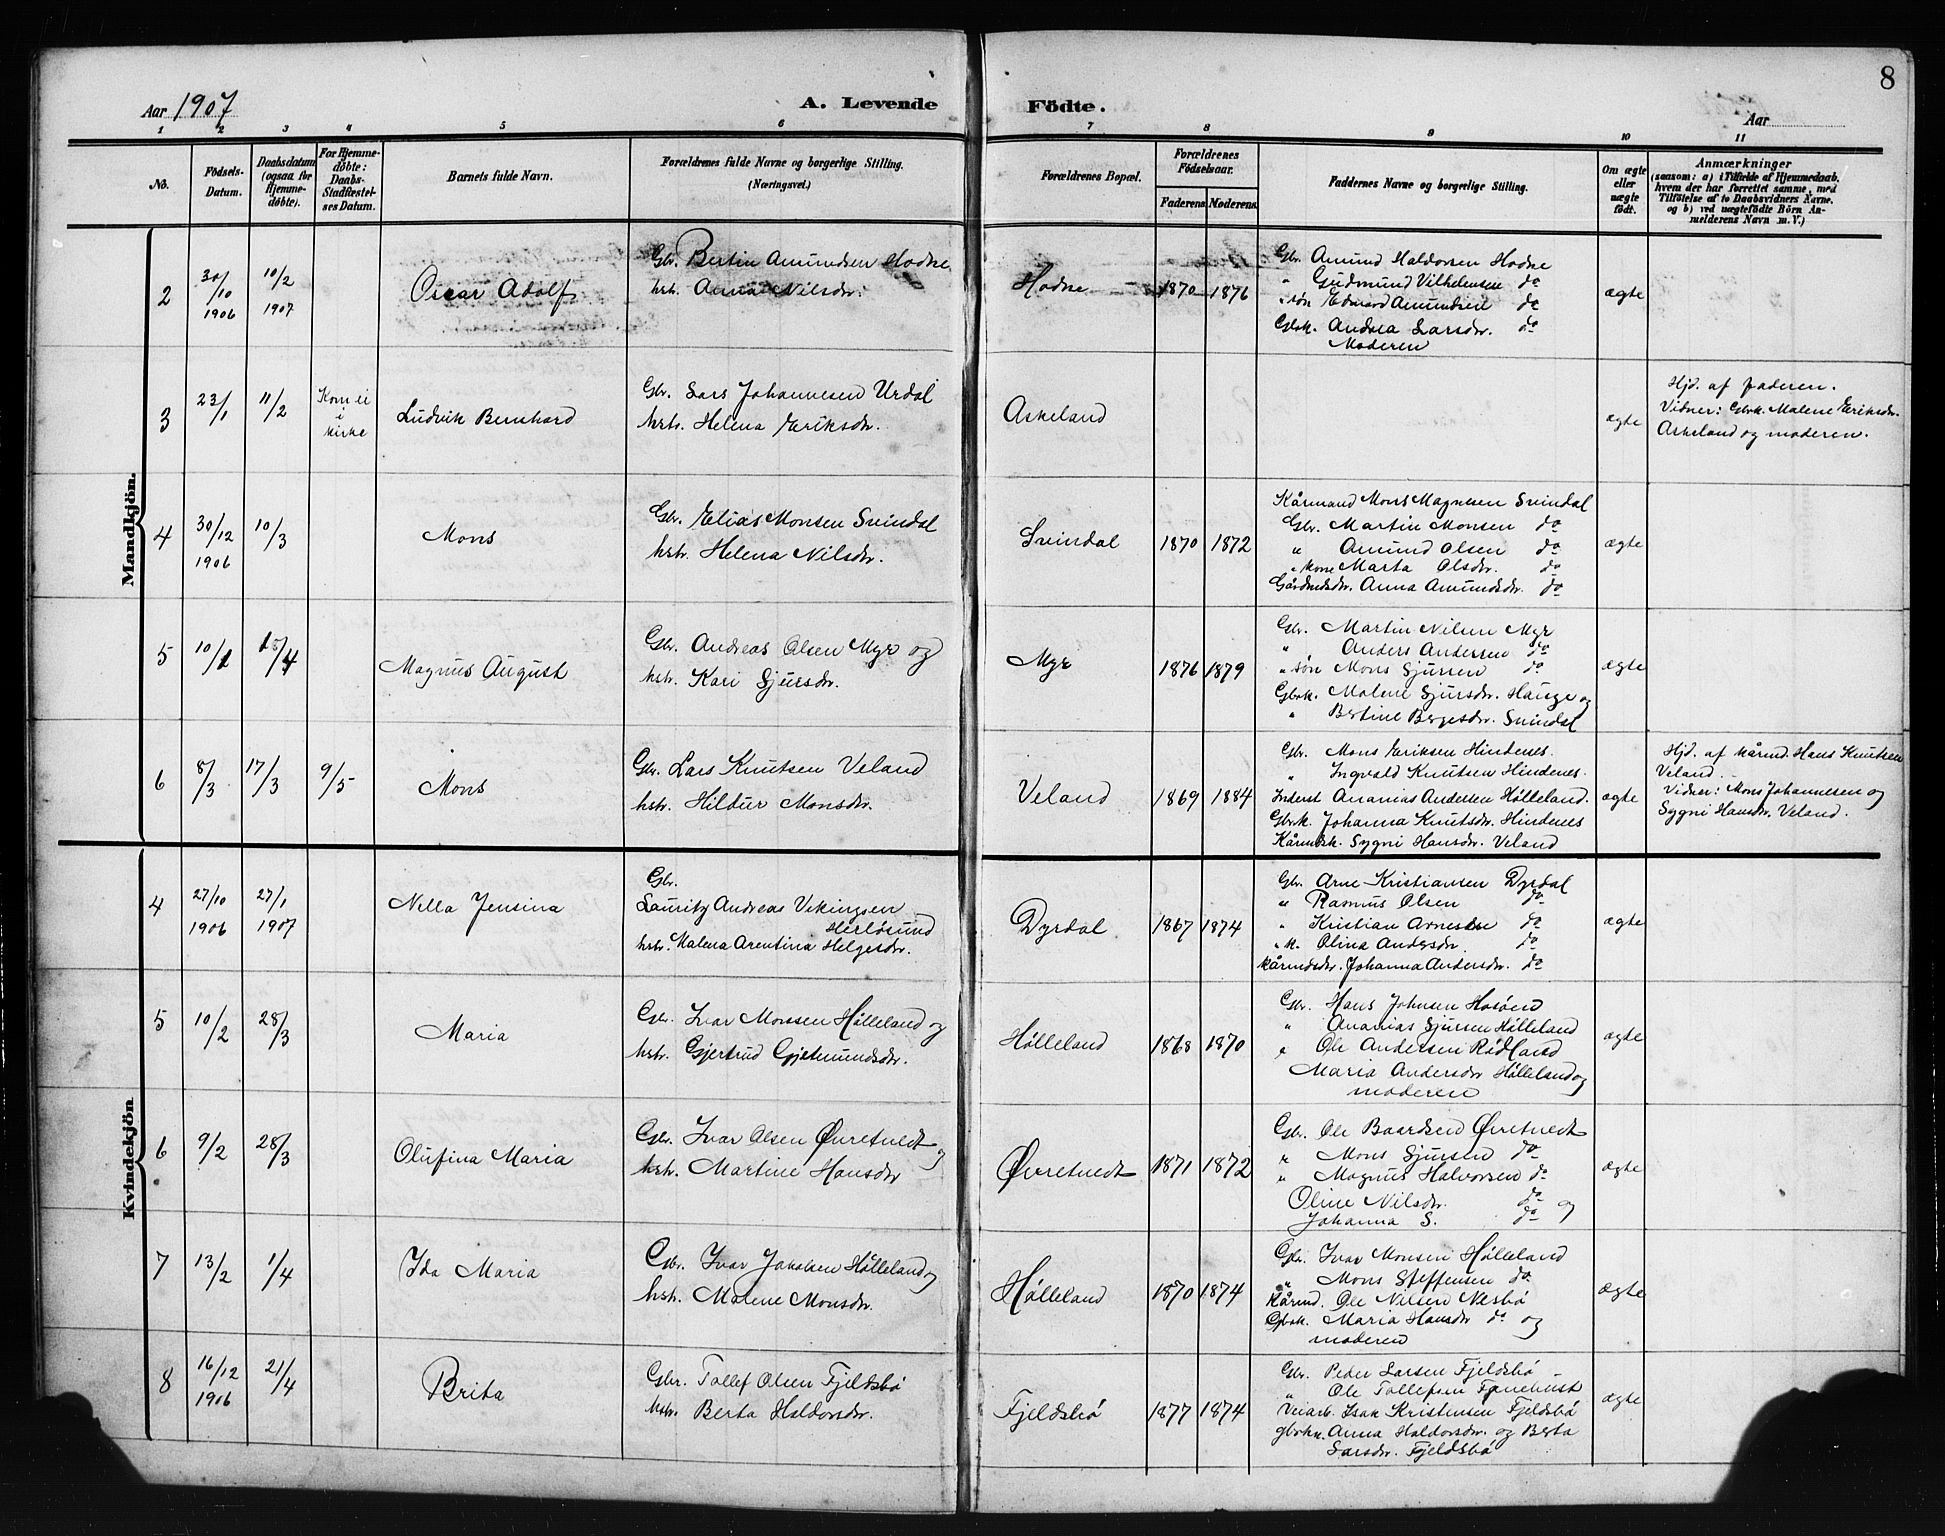 8
Aar 1907
A. Levende Födte.
Aar
1 2 3 4 5 6 7 8 9 10 11
No.
Födsels-Datum.
Daabsdatum (ogsaa for Hjemme-døbte).
For Hjemme-døbte: Daabs-Stadfæstel-ses Datum.
Barnets fulde Navn.
Forældrenes fulde Navne og borgerlige Stilling. (Næringsvei.)
Forældrenes Bopæl.
Forældrenes Fødselsaar.
Faderens. Moderens.
Faddernes Navne og borgerlige Stilling.
Om ægte eller uægte født.
Anmærkninger
(saasom: a) i Tilfælde af Hjemmedaab,
hvem der har forrettet samme, med
Tilføielse af to Daabsvidners Navne.
og b) ved uægtefødte Börn An-
melderens Navn m. V.)
Mandkjön.
2
30/10 1906
10/2 1907
Oscar Adolf
Gbr. Bertin Amundsen Hodne
hstr. Anna Nilsdr.
Hodne
1870 1876
Gbr. Amund Haldorsen Hodne
" Gudmund Vilhelmsen do
" søn Edvard Amundsen do
Gbrk. Andrea Larsdr. do
Moderen
ægte
3
23/1
11/2
Kom ei
i
kirke
Ludvik Bernhard
Gbr. Lars Johannesen Urdal
hstr. Helena Eriksdr.
Askeland
ægte
Hjd. af faderen.
Vidner: Gbrk. Malene Eriksdr.
Askeland og moderen.
4
30/12 1906
10/3
Mons
Gbr. Elias Monsen Svindal
hstr. Helena Nilsdr.
Svindal
1870 1872
Kårmand Mons Magnesen Svindal
Gbr. Martin Monsen do
" Amund Olsen do
" kone Marta Olsdr. do
Gårdmdsdr. Anna Amundsdr. do
ægte
5
10/1
15/4
Magnus August
Gbr. Andreas Olsen Myr og
hstr. Kari Sjursdr.
Myr
1876 1879
Gbr. Martin Nilsen Myr
" Anders Andersen do
" søn Mons Sjursen do
Gbrk. Malene Sjursdr. Hauge og
" Bertine Bergesdr. Svindal
ægte
6
8/3
17/3
9/5
Mons
Gbr. Lars Knutsen Veland
hstr. Hildur Monsdr.
Veland
1869 1884
Gbr. Mons Eriksen Hindenes.
" Ingvald Knutsen Hindenes.
Inderst Ananias Andersen Hølleland.
Gbrk. Johanna Knutsdr. Hindenes
Kårmdsk. Sygni Hansdr. Veland
ægte
Hjd. af kårmd. Hans Knutsen
Veland.
Vidner: Mons Johannesen og
Sygni Hansdr. Veland.
Kvindekjön
4
27/10 1906
27/1 1907
Nella Jensina
Gbr.
Lauritz Andreas Vekingsen
Herløsund
hstr. Malena Arentina Helgesdr.
Dyrdal
1867 1874
Gbr. Arne Kristiansen Dyrdal
" Rasmus Olsen do
" Kristian Arnesen do
" k. Olina Andersdr. do
Kårmdsdr. Johanna Andersdr. do
ægte
5
10/2
28/3
Maria
Gbr. Ivar Monsen Hølleland og
hstr. Gjertrud Gjetmundsdr.
Hølleland
1868 1870
Gbr. Hans Johnsen Hosøen
" Ananias Sjursen Hølleland
" Ole Andersen Rødland
Maria Andersdr Hølleland og
moderen
ægte
6
9/2
28/3
Olufina Maria
Gbr. Ivar Olsen Øvretvedt og
hstr. Martine Hansdr
Øvretvedt
1871 1872
Gbr. Ole Baardsen Øvretvedt
" Mons Sjursen do
" Magnus Halvorsen do
Oline Nilsdr. do og
Johanna S. do
ægte
7
13/2
1/4
Ida Maria
Gbr. Ivar Jakobsen Hølleland og
hstr. Malene Monsdr.
Hølleland
1870 1874
Gbr. Ivar Monsen Hølleland
" Mons Steffensen do
Kårmd. Ole Nilsen Nesbø
Gbrk. Maria Hansdr do og
moderen
ægte
8
16/12 1906
21/4
Brita
Gbr. Tollef Olsen Fjeldsbø
hstr. Berta Haldorsdr.
Fjeldsbø
1877 1874
Gbr. Peder Larsen Fjeldsbø
" Ole Tollefsen Fanehust
Veiarb. Isak Kristensen Fjeldsbø
gbrkn. Anna Haldorsdr. og Berta
Larsdr. Fjeldsbø
ægte